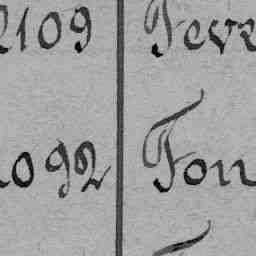 2109 Fevr
1092 Fon